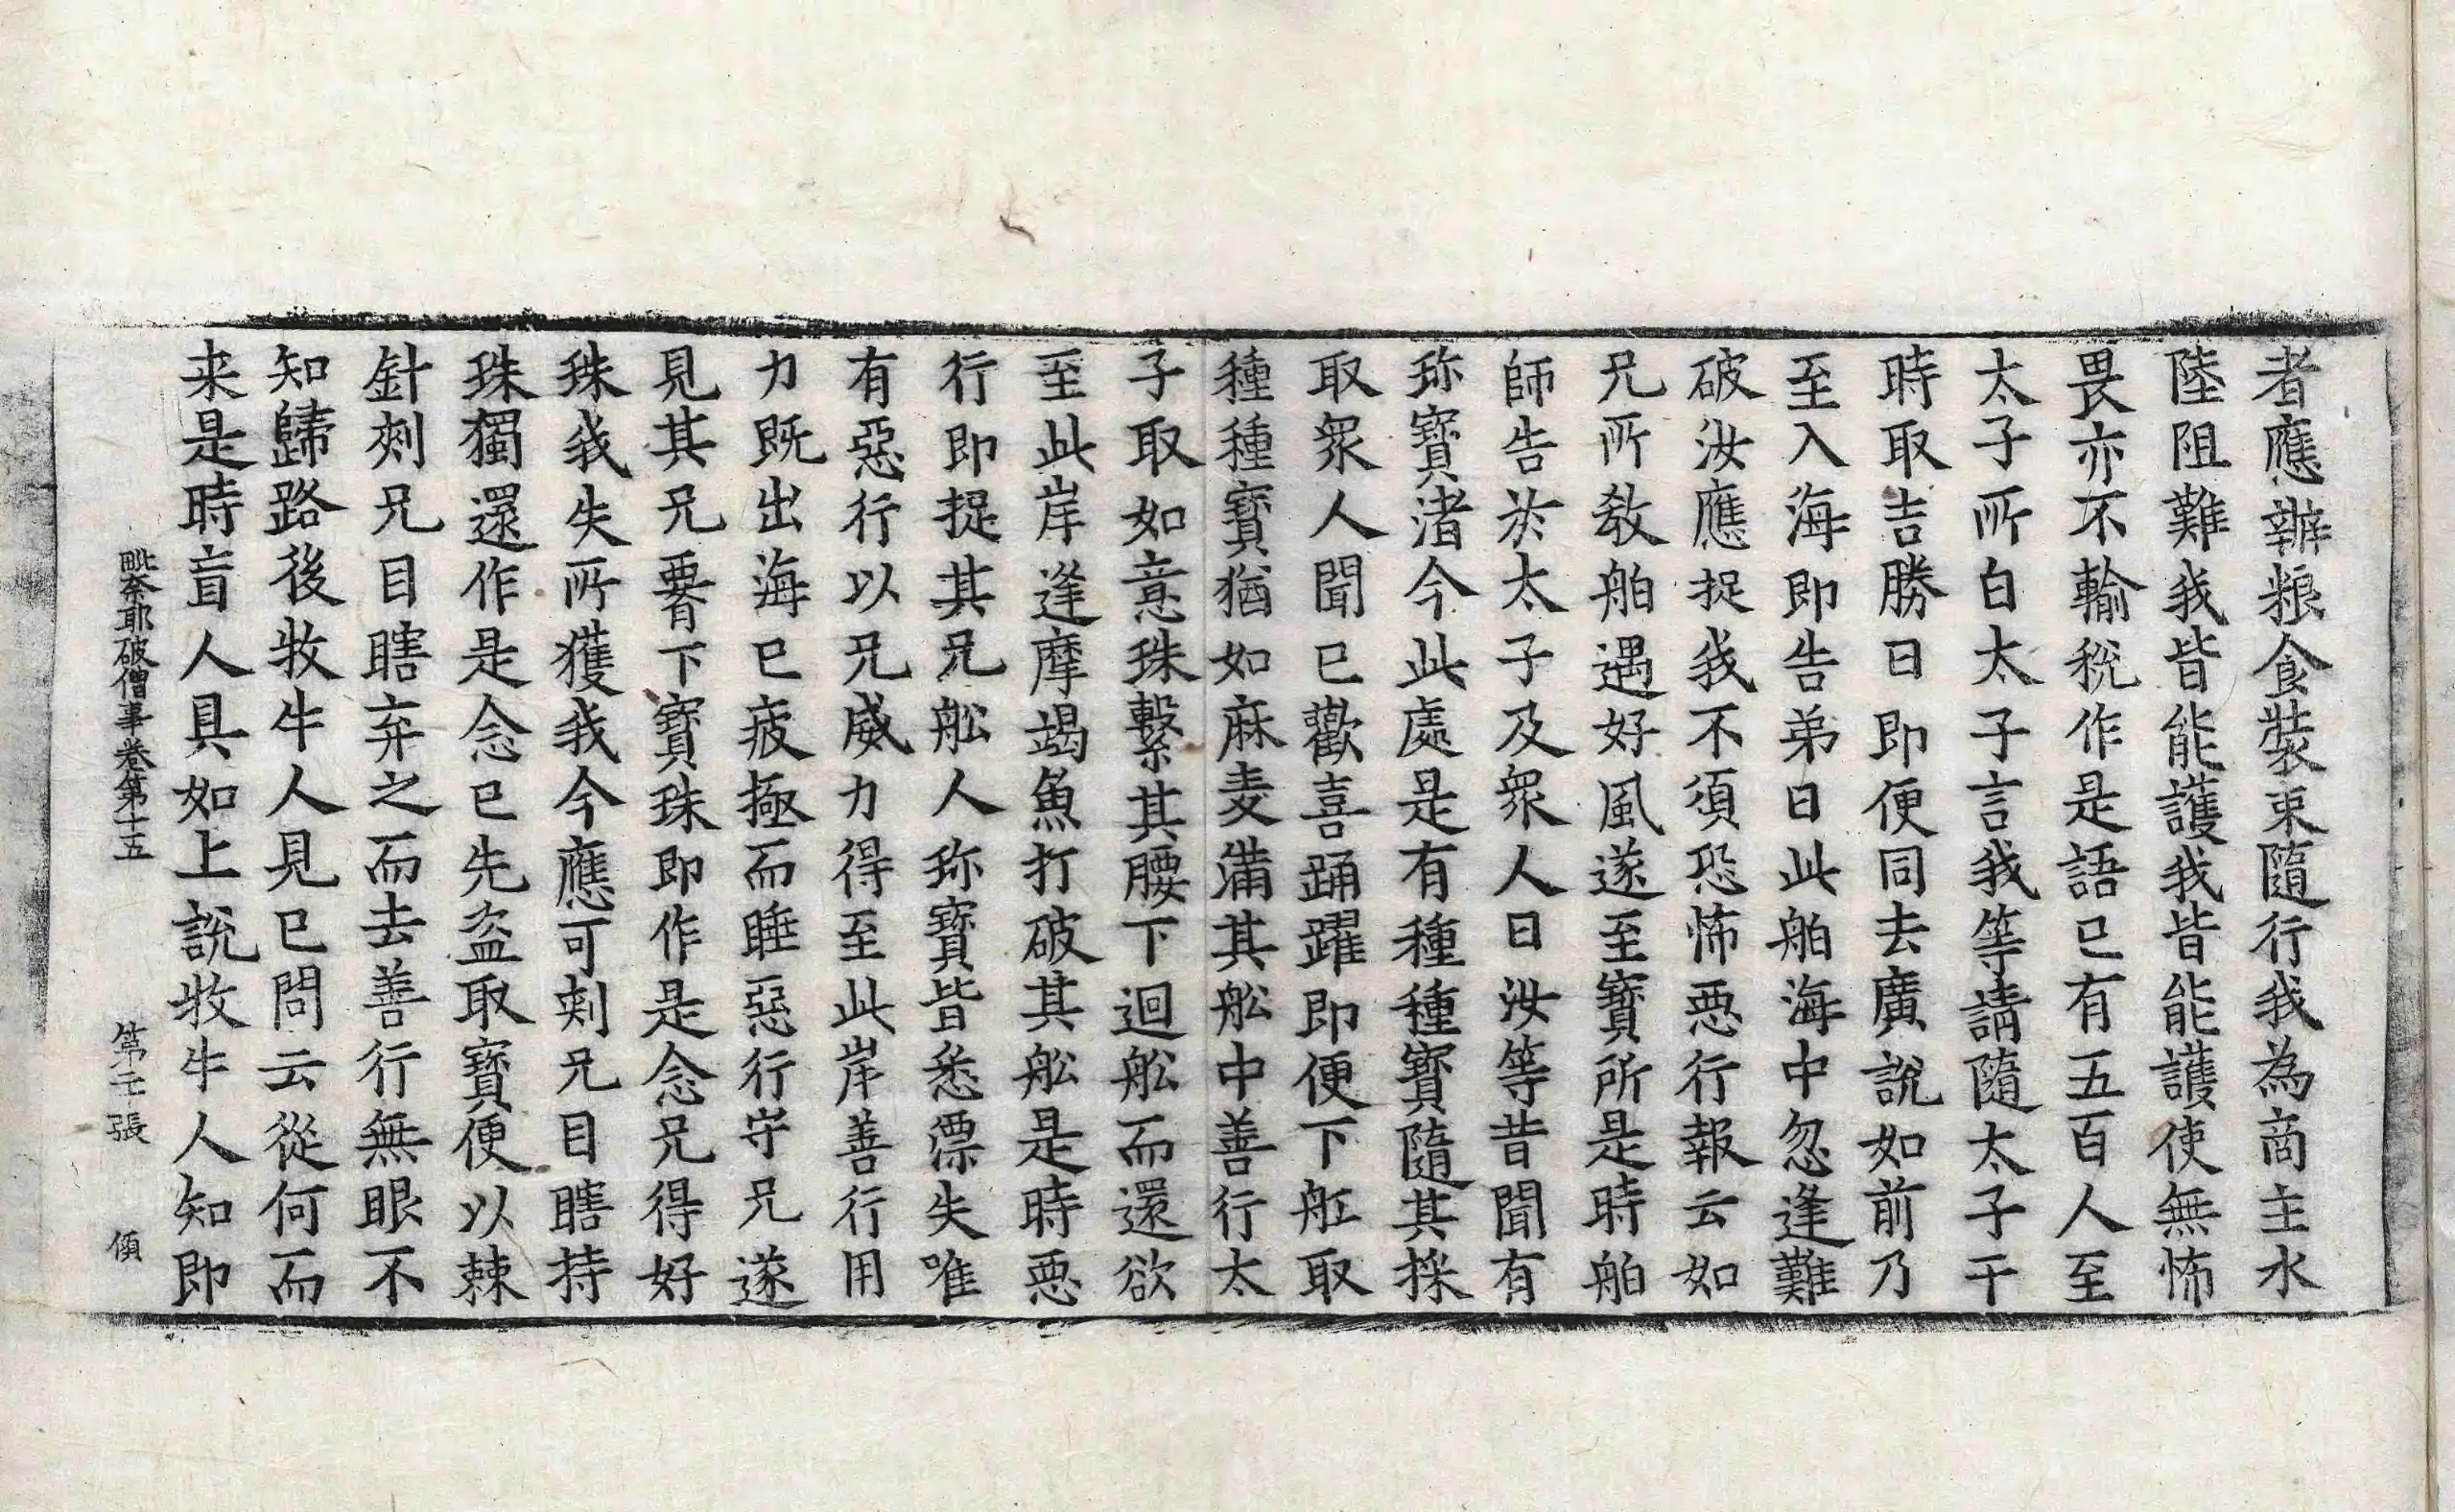 者應辦粮食裝束隨行我為商主水
陸阻難我皆能護我皆能護使無怖
畏亦不輸稅作是語已有五百人至
太子所白太子言我等請隨太子干
時取吉勝日即便同去廣說如前乃
至入海即告弟曰此舶海中忽逢難
破汝應捉我不須恐怖悪行報云如
兄所教舶遇好風遂至寶所是時舶
師告於太子及衆人曰汝等昔聞有
珎寶渚今此處是有種種寶隨其採
取衆人聞已歡喜踊躍即便下舡取
種種寶猶如麻麦滿其舩中善行太
子取如意珠繫其腰下迴舩而還欲
至此岸逢摩竭魚打破其舩是時悪
行即捉其兄舩人珎寶皆悉漂失唯
有惡行以兄威力得至此岸善行用
力既出海已疲極而睡惡行守兄遂
見其兄署下寶珠即作是念兄得好
珠我失所獲我今應可刾兄目瞎持
珠獨還作是念已先盜取寶便以棘
針刾兄目瞎弃之而去善行無眼不
知歸路後牧牛人見已問云從何而
来是時盲人具如上說牧牛人知即
毗奈耶破僧事卷第十五 第 張 傾